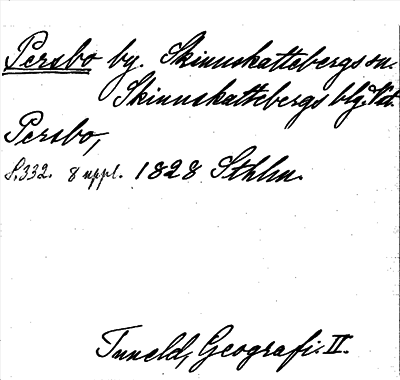 Persbo by. Skinnskattebergs sn.
Skinnskattebergs blg. Vstm.
Persbo,
S. 332. 8 uppl. 1828 Sthlm.
Tuneld, Geografi. II.